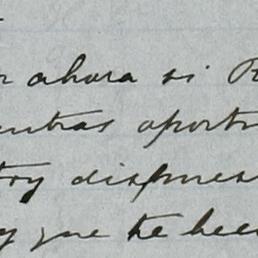 r ahora si R
entras oportu
toy dispues
y que he hec